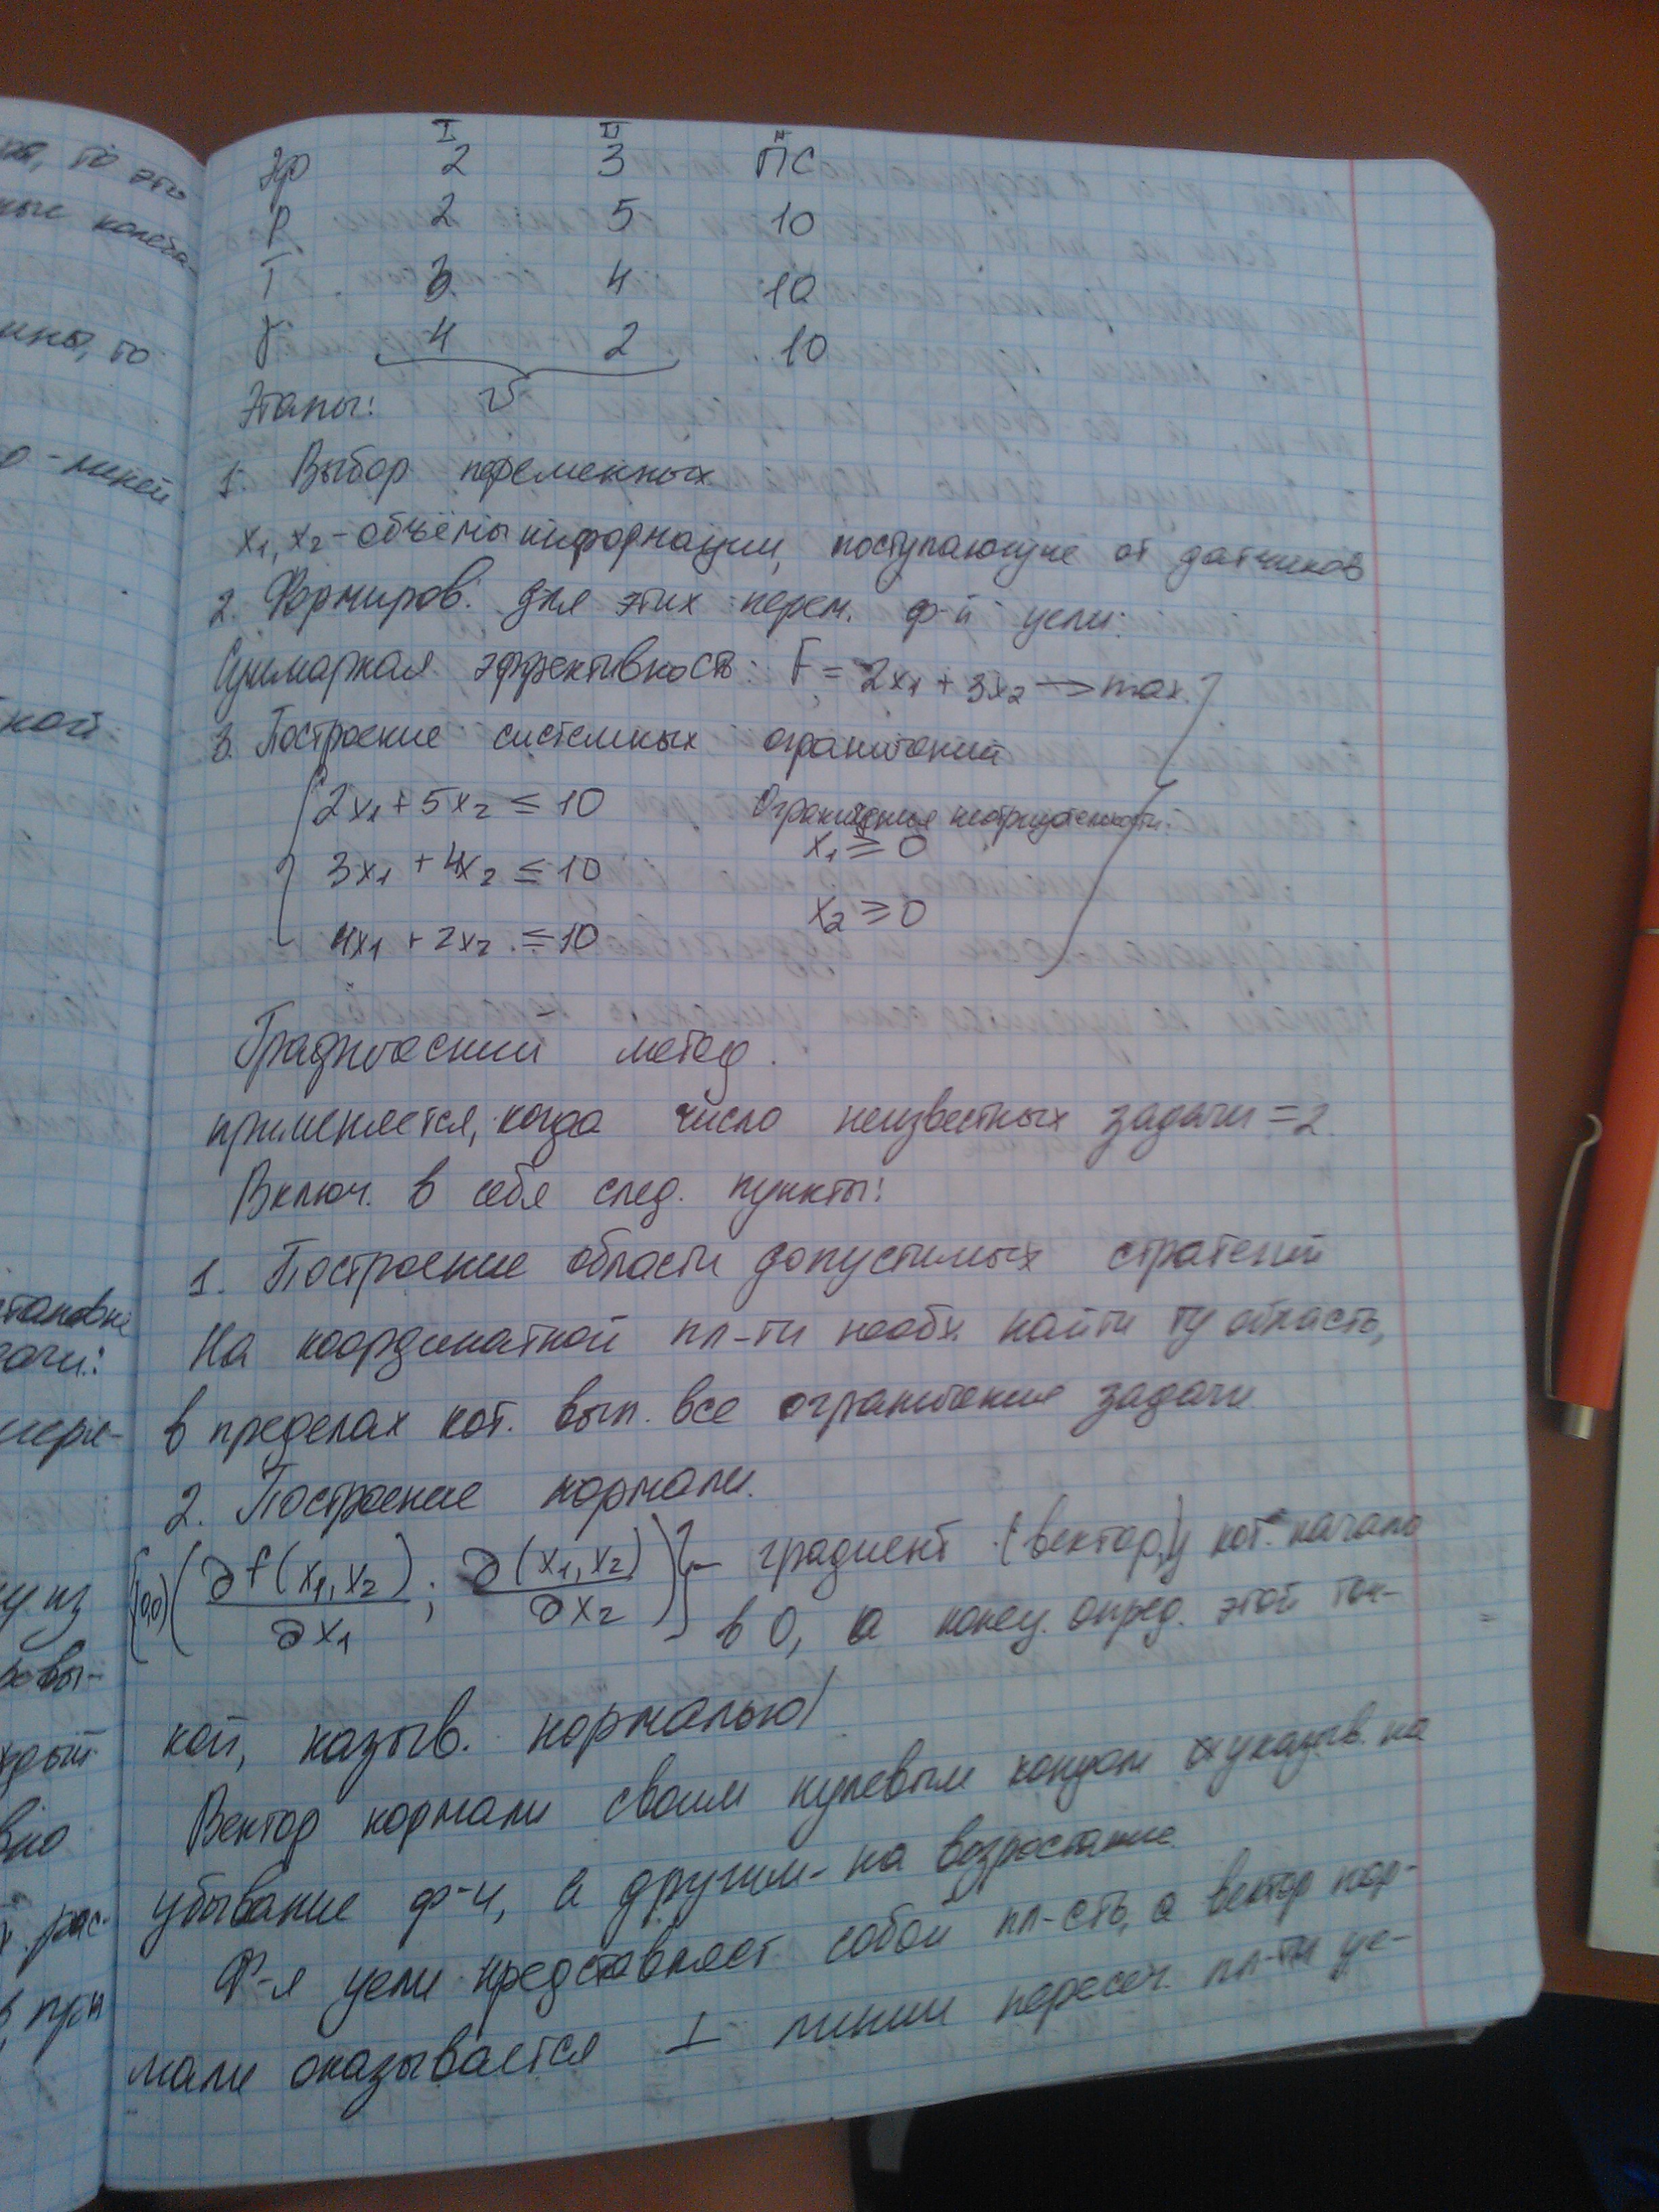 I II
Эф 2 3 ПС
P 2 5 10
T 3 4 10
γ 4 2 10
Этапы: V
1. Выбор переменных.
x1, x2 - объёмы информации, поступающие от датчиков
2. Формиров. для этих перем. ф-и цели:
Суммарная эффективность: F = 2x1 + 3x2 → max.
3. Построение системных ограничений
2x1 + 5x2 ≤ 10 Ограничения неотрицательности:
x1 ≥ 0
3x1 + 4x2 ≤ 10
x2 ≥ 0
4x1 + 2x2 ≤ 10
Графический метод.
применяется, когда число неизвестных задачи = 2.
Включ. в себя след. пункты:
1. Построение области допустимых стратегий
На координатной пл-ти необх. найти ту область,
в пределах кот. вып. все ограничения задачи
2. Построение нормали.
{(0,0)(∂f(x1,x2)/∂x1; ∂(x1,x2)/∂x2)} - градиент (вектор, у кот. начало
в 0, а конец опред. этой точ-
кой, назыв. нормалью)
Вектор нормали своим нулевым концом указыв. на
убывание ф-и, а другим - на возрастание.
Ф-я цели представляет собой пл-сть, а вектор нор-
мали оказывается ⊥ линии пересеч. пл-ти це-
то это
ные
ины, то
линей
ной
становке
ачи:
у из
ждый
вно
рас-
при